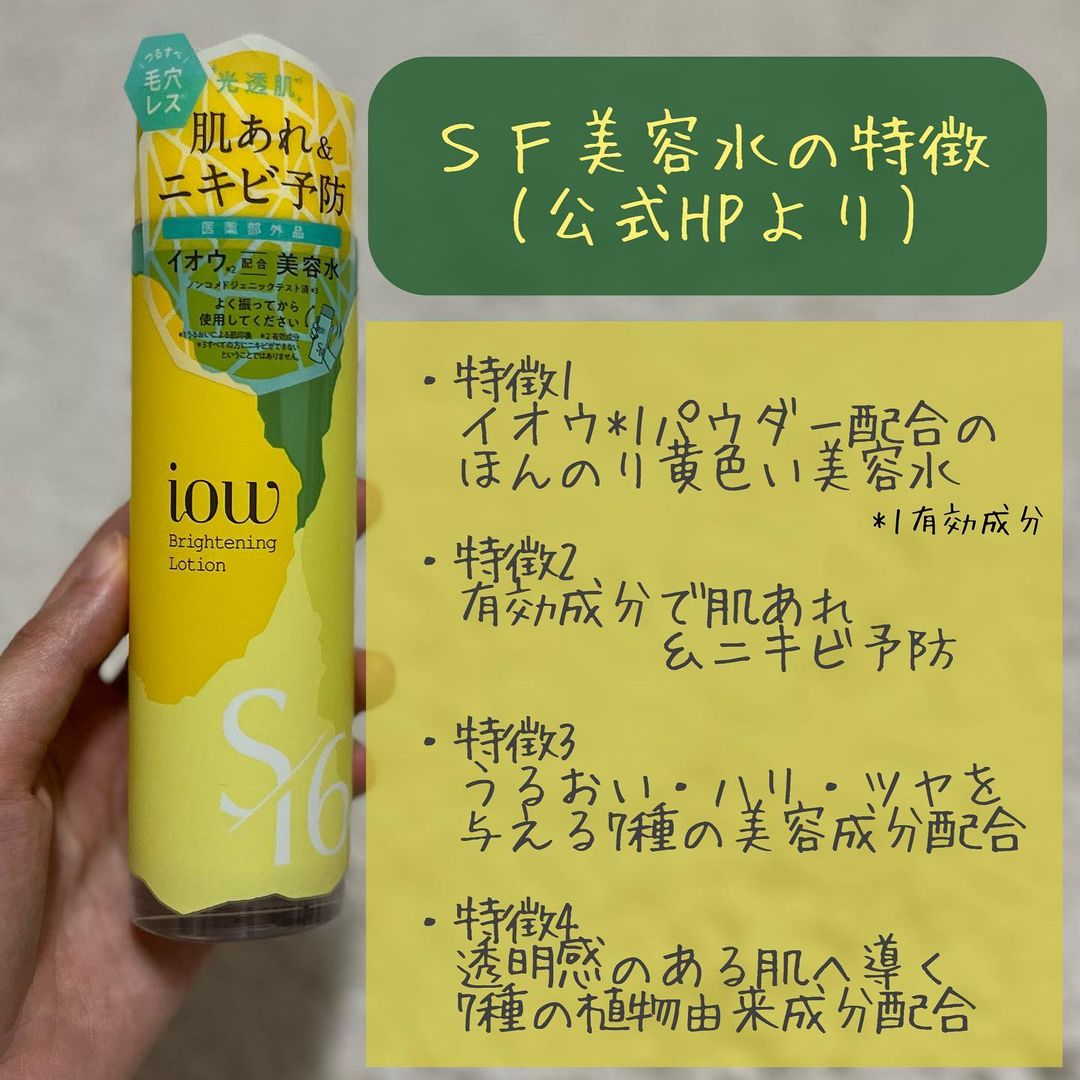 つるすべ
毛穴
レス*1
光透肌*1
肌あれ&
ニキビ予防
医薬部外品
イオウ*2 配合 美容水
ノンコメドジェニックテスト済*3
よく振ってから
使用してください
*1うるおいによる肌印象 *2有効成分
*3すべての方にニキビができない
ということではありません。
iow
Brightening
Lotion
S/16
SF美容水の特徴
(公式HPより)
・特徴1
イオウ*1パウダー配合の
ほんのり黄色い美容水
*1有効成分
・特徴2
有効成分で肌あれ
&ニキビ予防
・特徴3
うるおい・ハリ・ツヤを
与える7種の美容成分配合
・特徴4
透明感のある肌へ導く
7種の植物由来成分配合